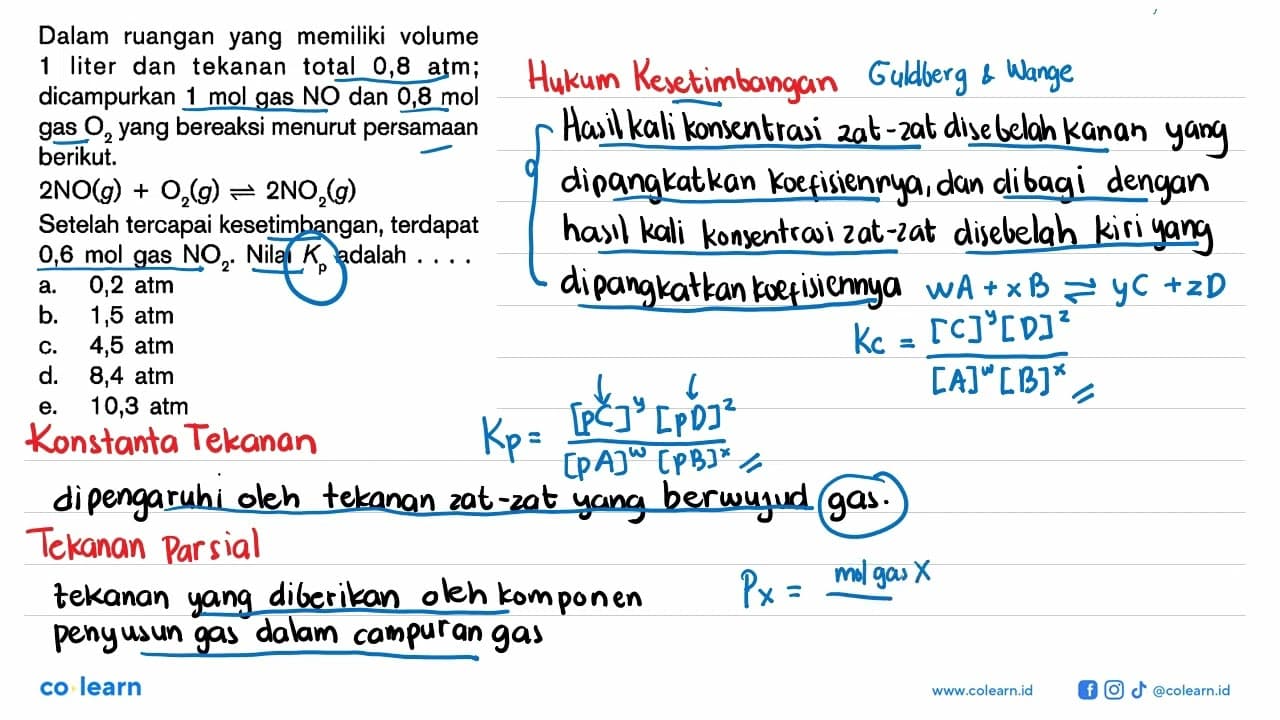 Dalam ruangan yang memiliki volume
1 liter dan tekanan total 0,8 atm;
dicampurkan 1 mol gas NO dan 0,8 mol
gas O₂ yang bereaksi menurut persamaan
berikut.
2NO(g) + O₂(g) ⇌ 2NO₂(g)
Setelah tercapai kesetimbangan, terdapat
0,6 mol gas NO₂. Nilai Kₚ adalah . . . .
a. 0,2 atm
b. 1,5 atm
c. 4,5 atm
d. 8,4 atm
e. 10,3 atm
Hukum Kesetimbangan Guldberg & Wange
Hasil kali konsentrasi zat-zat disebelah kanan yang
dipangkatkan koefisiennya, dan dibagi dengan
hasil kali konsentrasi zat-zat disebelah kiri yang
dipangkatkan koefisiennya wA + xB ⇌ yC + zD
Kc = [C]^y [D]^z / [A]^w [B]^x
Konstanta Tekanan
Kp = [pC]^y [pD]^z / [pA]^w [pB]^x
dipengaruhi oleh tekanan zat-zat yang berwujud gas.
Tekanan Parsial
tekanan yang diberikan oleh komponen
penyusun gas dalam campuran gas
Px = mol gas X
co learn
www.colearn.id
@colearn.id